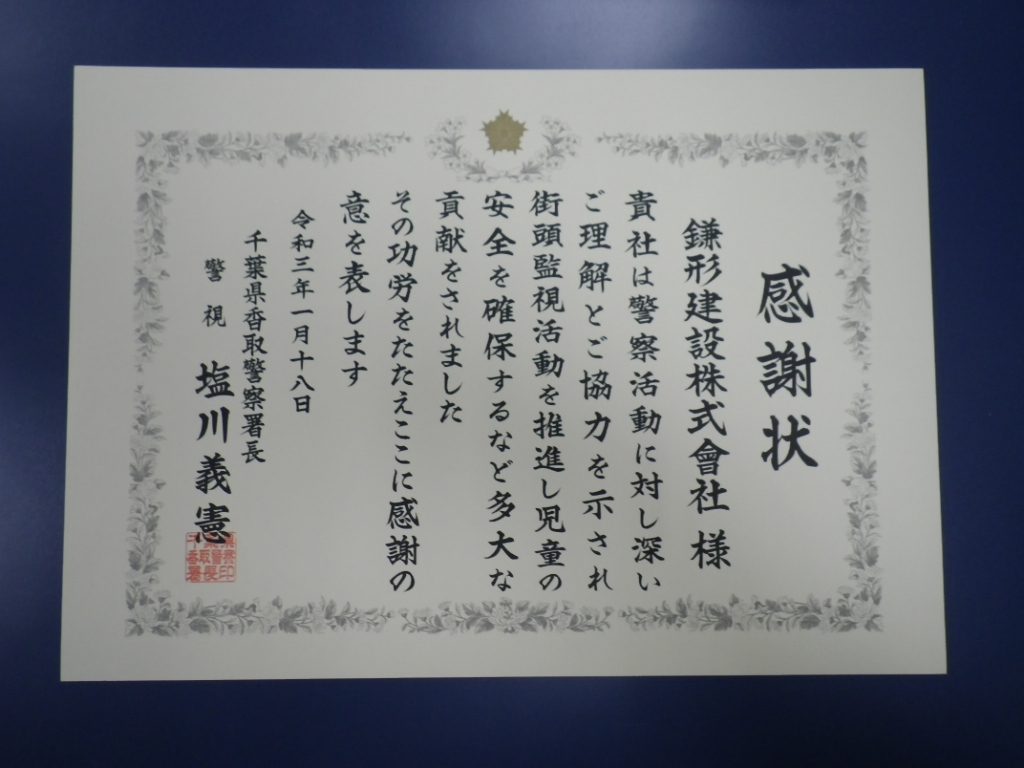 感謝状
鎌形建設株式會社 様
貴社は警察活動に対し深い
ご理解とご協力を示され
街頭監視活動を推進し児童の
安全を確保するなど多大な
貢献をされました
その功労をたたえここに感謝の
意を表します
令和三年一月十八日
千葉県香取警察署長
警視 塩川義憲
千葉県香取警察署長印